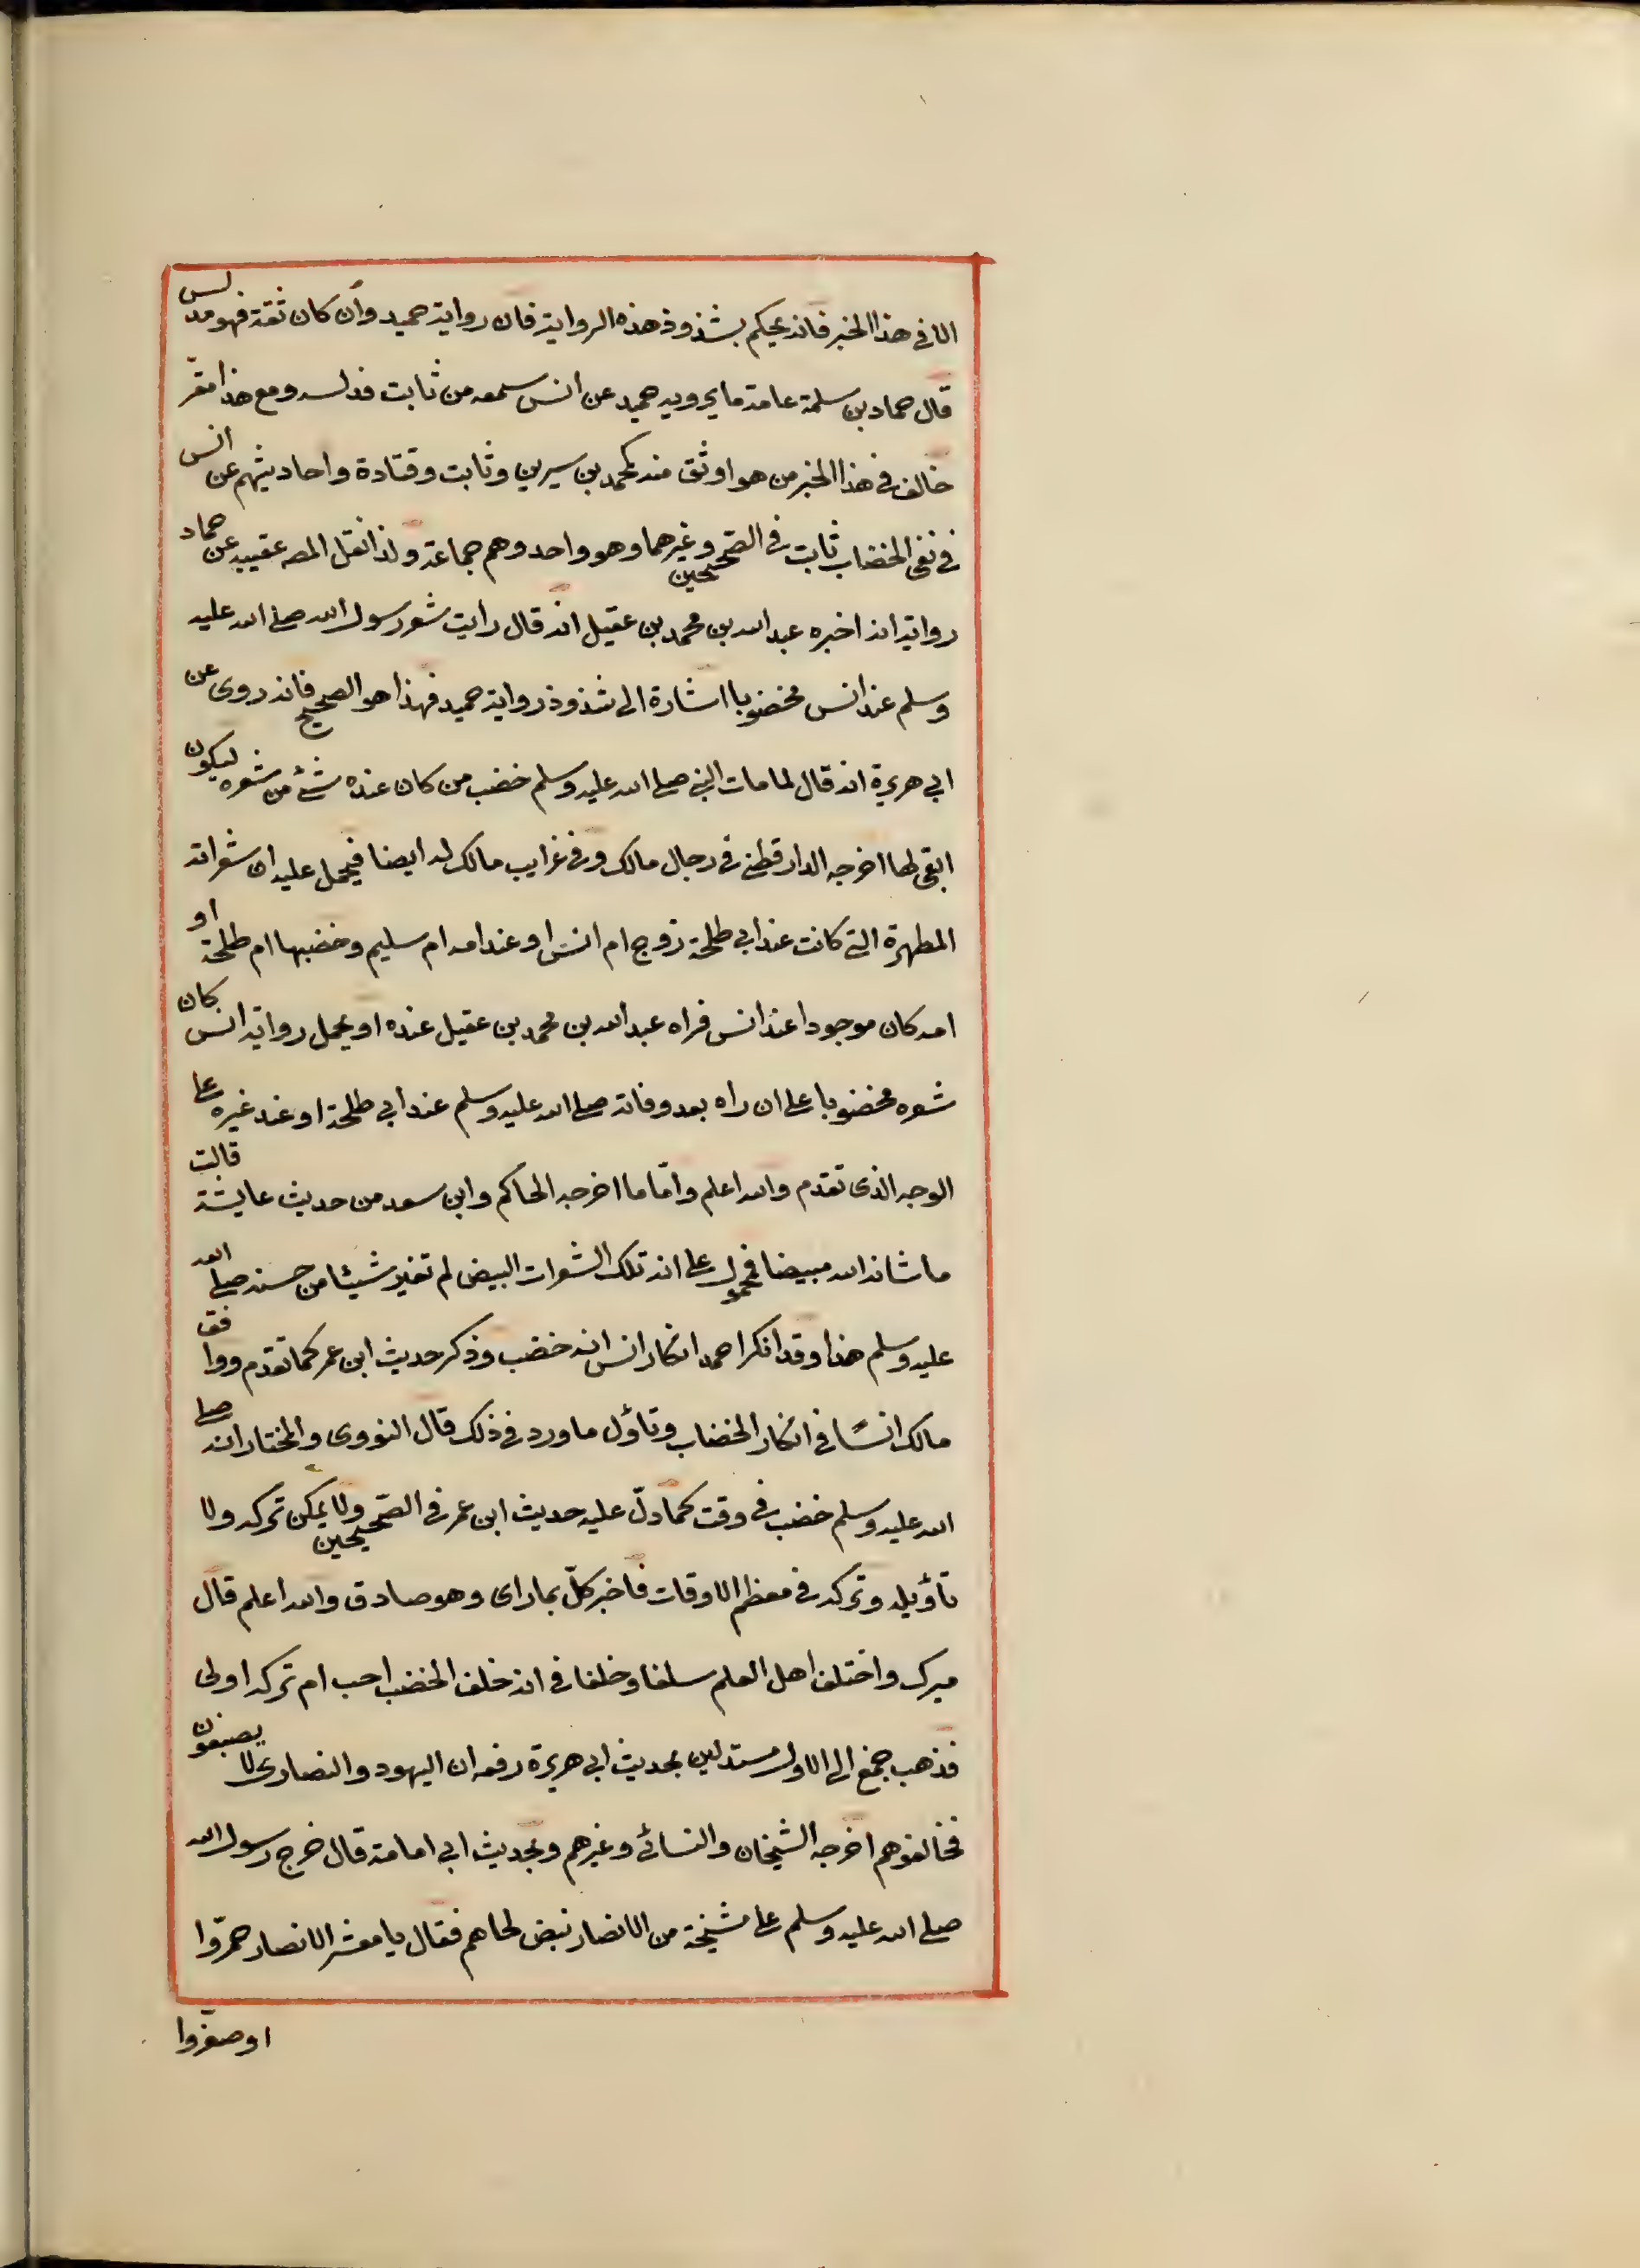 الا في هذا الخبر فانه يحكم بشذوذ هذه الرواية فان رواية حميد وان كان ثقة فهو مدلس
قال حماد بن سلمة عامة ما يرويه حميد عن انس سمعه من ثابت فدلسه ومع هذا فقد
خالف في هذا الخبر من هو اوثق منه كمحمد بن سيرين وثابت وقتادة واحاديثهم عن انس
في نفي الخضاب ثابت في الصحيحين وغيرهما وهو واحد وهم جماعة ولذا نقل المص عقيبه عن حماد
روايته انه اخبره عبد الله بن محمد بن عقيل انه قال رأيت شعر رسول الله صلى الله عليه
وسلم عند انس مخضوبا اشارة الى شذوذ رواية حميد فهذا هو الصحيح فانه روى عن
ابي هريرة انه قال لما مات النبي صلى الله عليه وسلم خضب من كان عنده شئ من شعره ليكون
ابقى لها اخرجه الدارقطني في رجال مالك وفي غرايب مالك له ايضا فيحمل عليه ان شعراته
المطهرة التي كانت عند ابي طلحة زوج ام انس او عند امه ام سليم وخضبها ام طلحة او
امه كان موجودا عند انس فراه عبد الله بن محمد بن عقيل عنده او يحمل رواية انس كان
شعره مخضوبا على ان راه بعد وفاته صلى الله عليه وسلم عند ابي طلحة او عند غيره على
الوجه الذى تقدم والله اعلم وامّا ما اخرجه الحاكم وابن سعد من حديث عايشة قالت
ما شانه الله مبيضا فمحمول على انه تلك الشعرات البيض لم تغير شيئا من حسنه صلى الله
عليه وسلم هذا وقد انكر احمد انكار انس انه خضب وذكر حديث ابن عمر كما تقدم ووافق
مالك انسًا في انكار الخضاب وتاؤل ما ورد في ذلك قال النووى والمختار انه صلى
الله عليه وسلم خضب في وقت كما دلّ عليه حديث ابن عمر في الصحيحين ولا يمكن تركه ولا
تأويله وتركه في معظم الاوقات فاخبر كلّ بما راى وهو صادق والله اعلم قال
ميرك واختلف اهل العلم سلفا وخلفا في انه خلف الخضب احب ام تركه اولى
فذهب جمع الى الاول مستدلين بحديث ابي هريرة رفعه ان اليهود والنصارى لا يصبغون
فخالفوهم اخرجه الشيخان والنسائى وغيرهم وبحديث ابي امامة قال خرج رسول الله
صلى الله عليه وسلم على مشيخة من الانصار نبض لحاهم فقال يا معشر الانصار حمّروا
او صفّروا